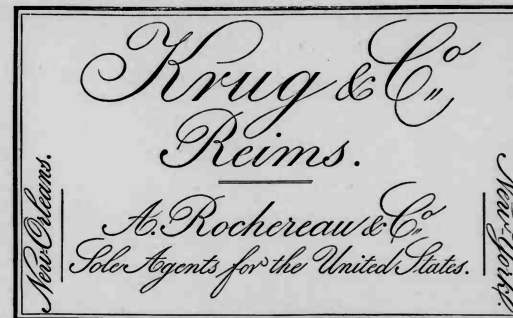 Krug & Co.
Reims.
A. Rochereau & Co.
Sole Agents for the United States.
New Orleans.
New-York.